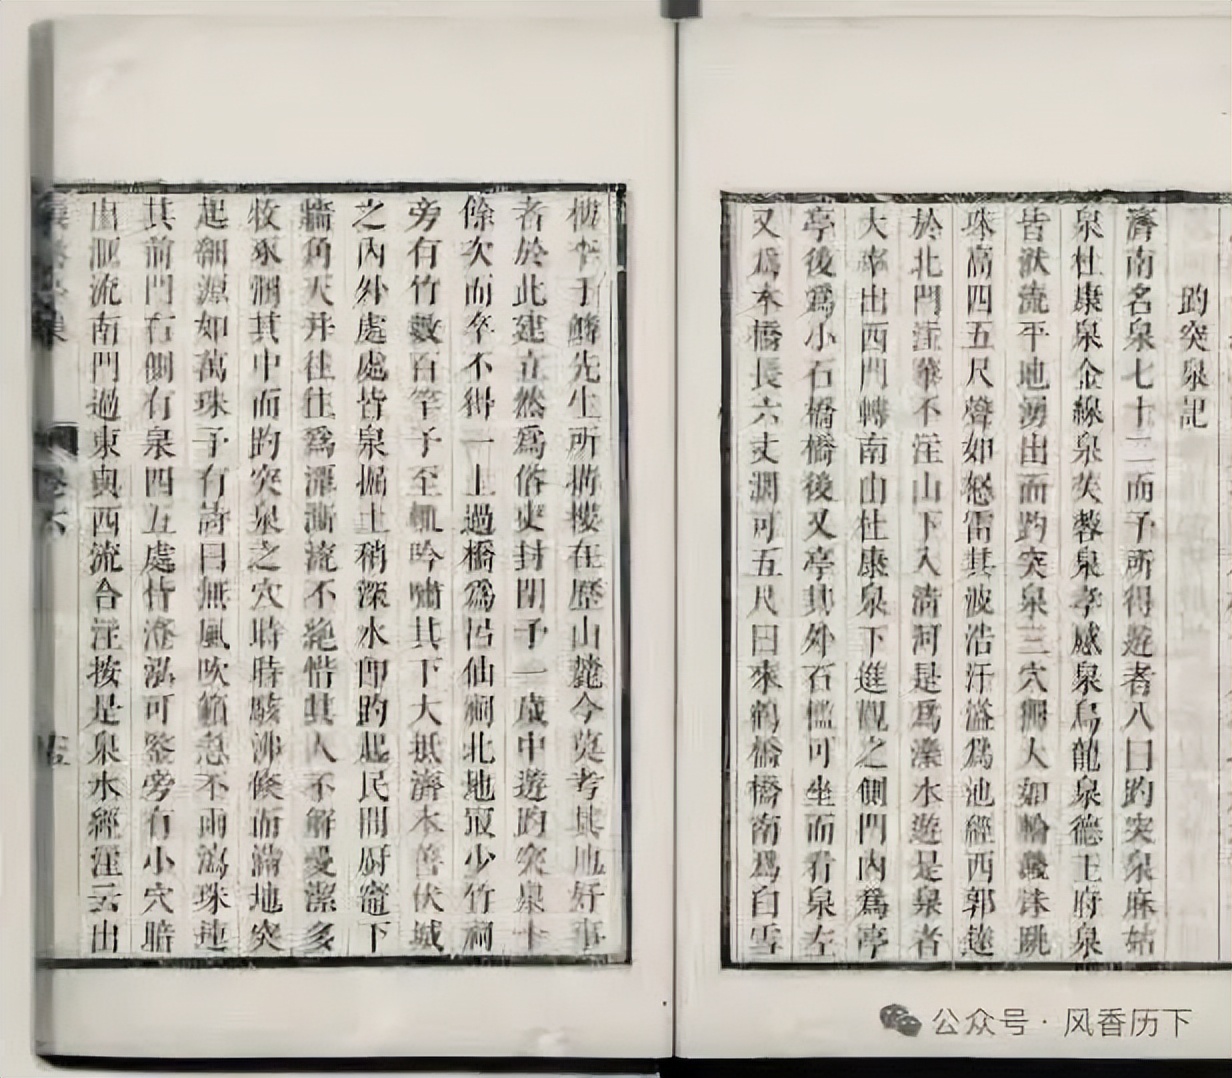 趵突泉記
濟南名泉七十二而予所得遊者八曰趵突泉麻姑
泉杜康泉金線泉芙蓉泉孝感泉烏龍泉德王府泉
皆洑流平地湧出而趵突泉三穴獨大如輪濺沫跳
珠高四五尺聲如怒雷其波浩汗溢為池經西郭達
於北門滙華不注山下入清河是為濼水遊是泉者
大率出西門轉南由杜康泉下進觀之側門內為亭
亭後為小石橋橋後又亭其外石檻可坐而看泉左
又為木橋長六丈濶可五尺曰來鶴橋橋南為白雪
樓李于鱗先生所搆樓在歷山麓今莫考其地好事
者於此建立然為俗吏封閉予一歲中遊趵突泉十
餘次而卒不得一上過橋為呂仙祠北地寂少竹祠
旁有竹數百竿予至輒吟嘯其下大抵濟水善伏城
之內外處處皆泉掘土稍深水即趵起民間厨竈下
牆角天井往往為潭澌流不絶惜其人不解愛潔多
牧豕溷其中而趵突泉之穴時時駭沸倏而滿地突
起細源如萬珠子有詩曰無風吹籟急不雨瀉珠連
其前門右側有泉四五處皆澄泓可鑒旁有小穴暗
出滙流南門過東與西流合注按是泉水經注云出
卷六
公众号·风香历下